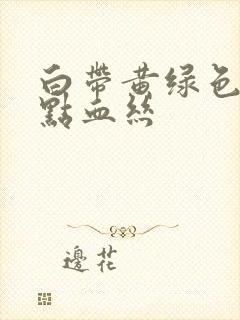 白帶黃绿色
點血絲
邊花